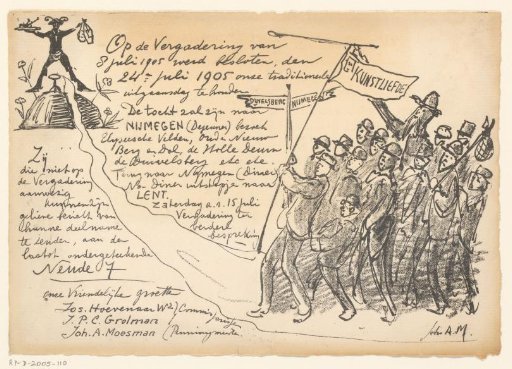 Op de Vergadering van
8 juli 1905 werd besloten, den
24sten juli 1905 onze traditioneele
uitgaansdag te houden.
De tocht zal zijn naar
NIJMEGEN (Dejeuner) bezoek
Elyzeesche Velden, Oude en Nieuwe
Berg en Dal, de Holle Deurn
de Duivelsberg etc etc.
Terug naar Nijmegen (Diner)
Na Diner uitstapje naar
LENT.
Zaterdag a.s. 15 juli
Vergadering ter
verdere
bespreking
Zij
die niet op
de Vergadering
aanwezig
kunnen zijn
gelieve bericht van
deelname
te zenden, aan de
laatst ondergeteekende
Neude 7
onze Vriendelijke groeten
Jos. Hoevenaar Wz
J. P. C. Grolman
Joh. A. Moesman (Penningmeester)
Commissie
DUIVELSBERG
NIJMEGEN
Gt KUNSTLIEFDE
Joh. A. M.
RP-D-2005-110